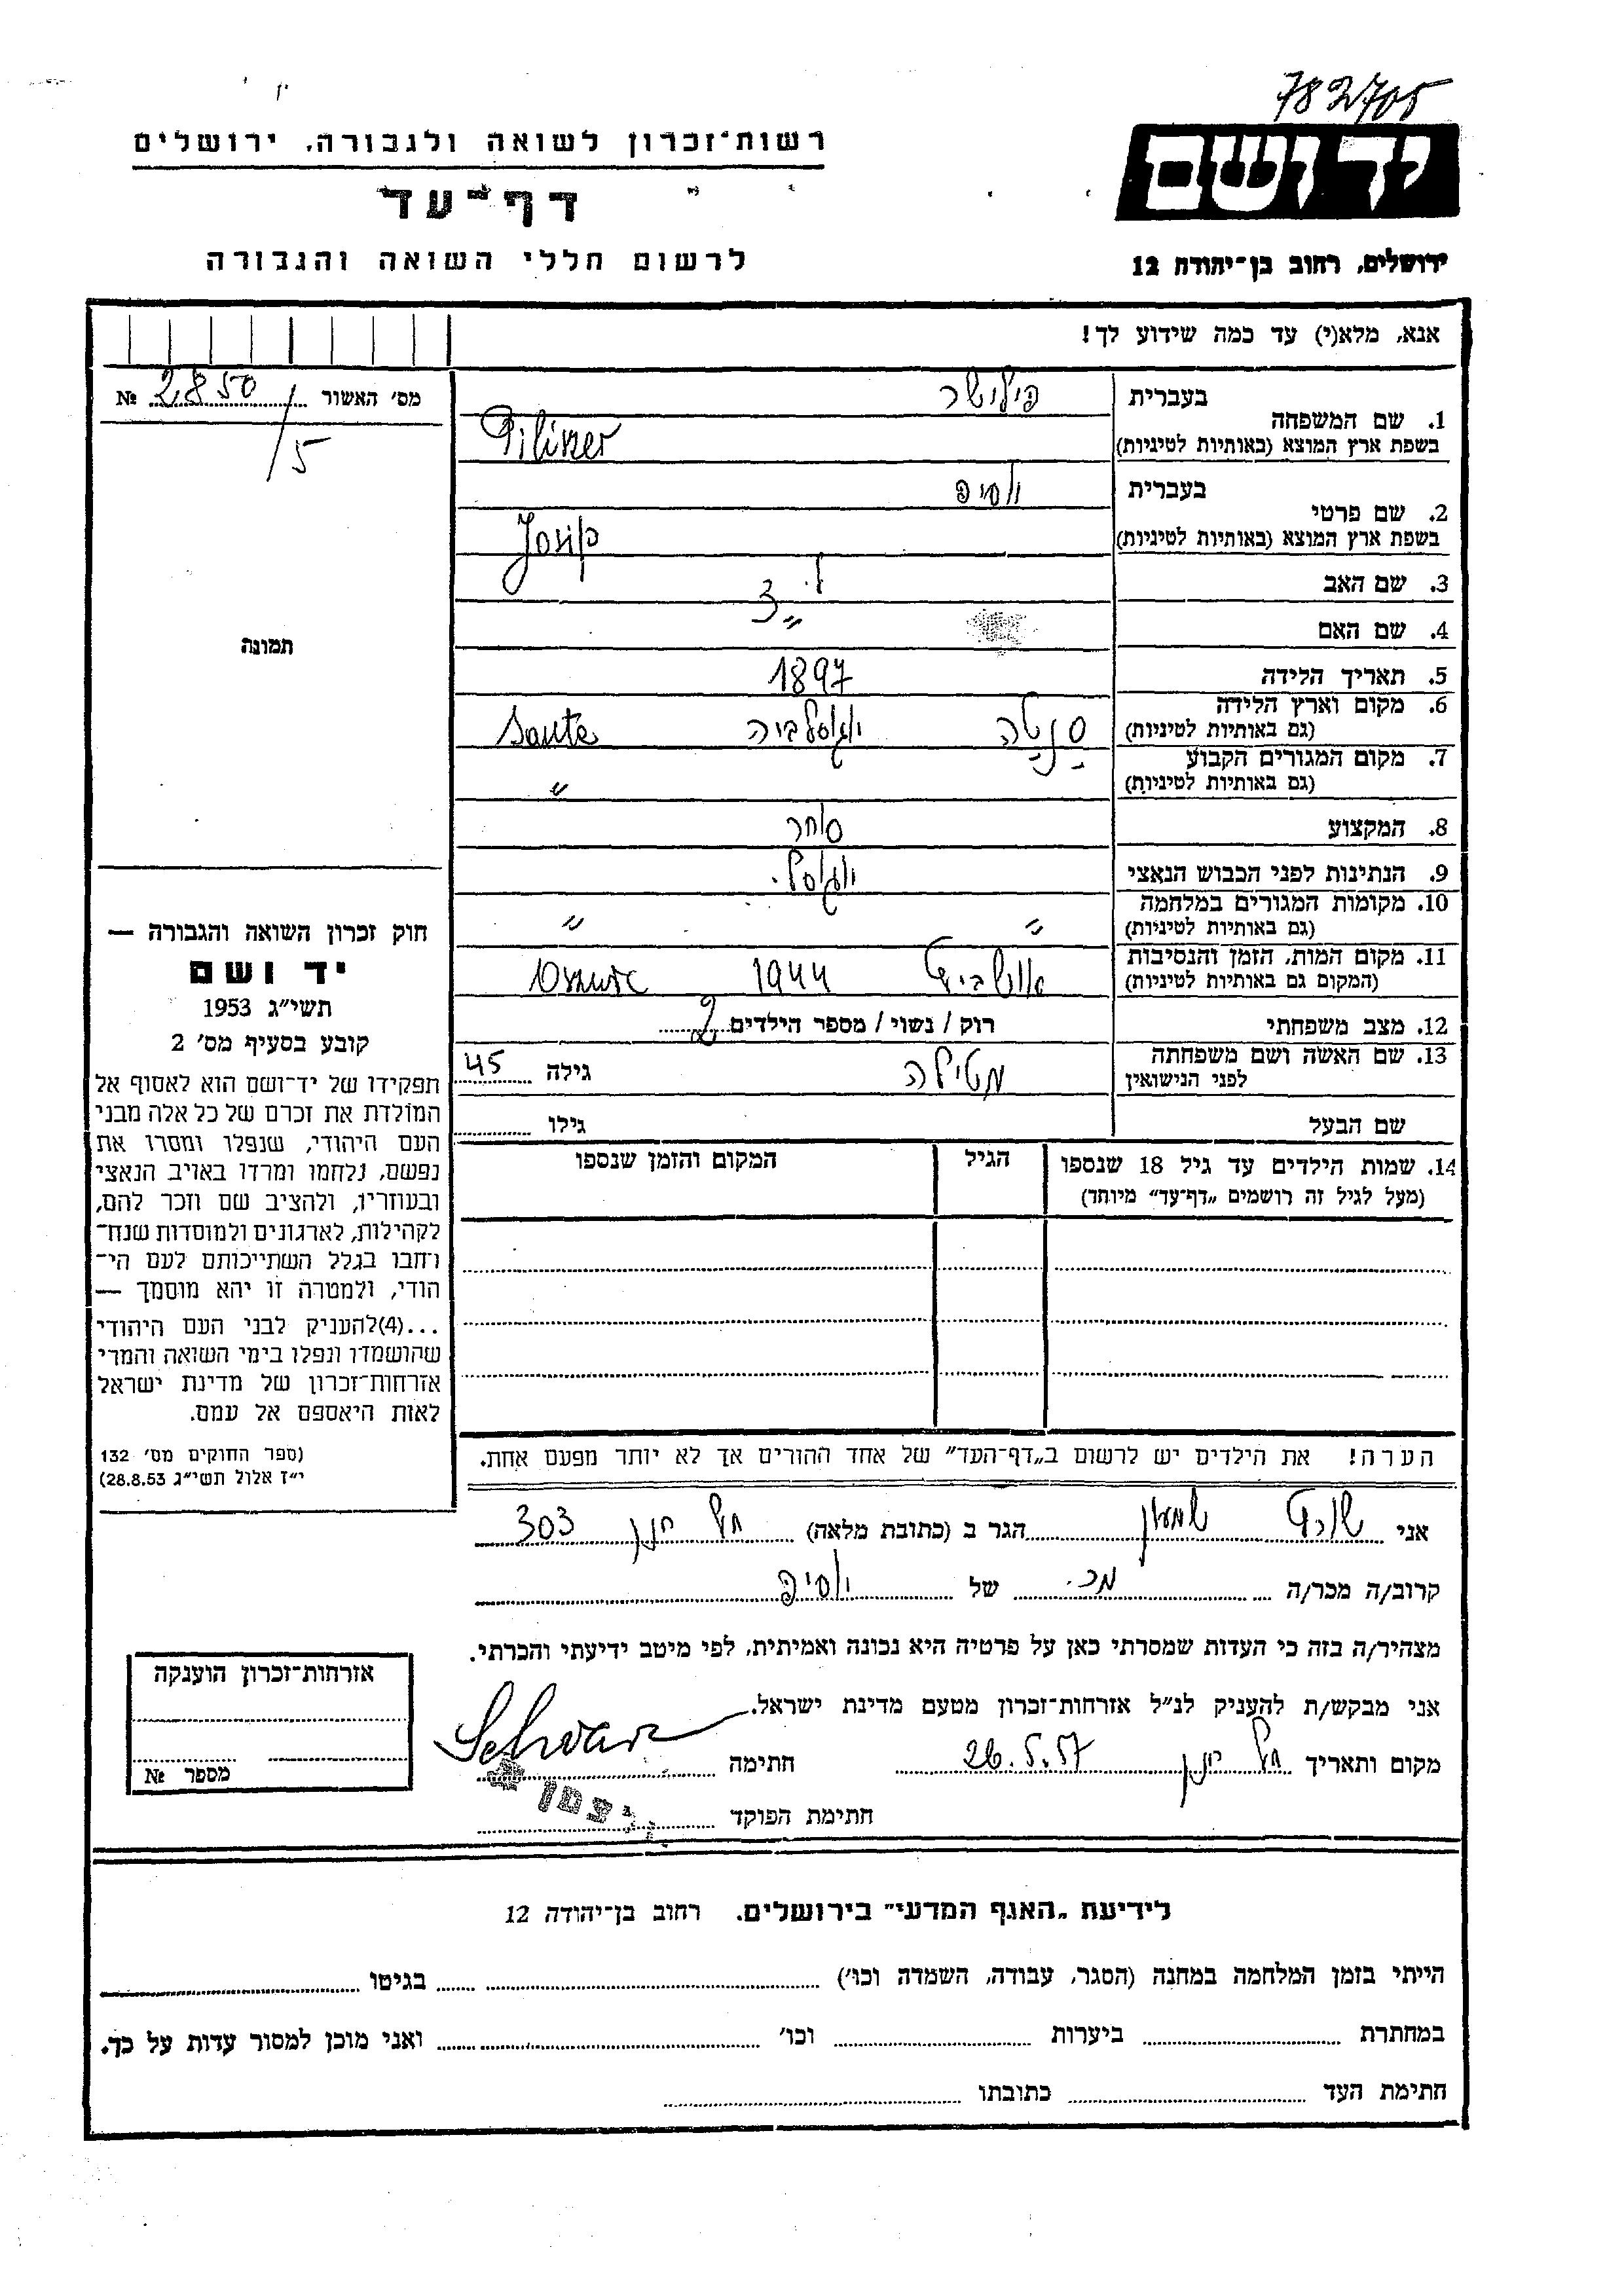 782705
יד ושם
רשות־זכרון לשואה ולגבורה, ירושלים
דף־עד
לרשום חללי השואה והגבורה
ירושלים, רחוב בן־יהודה 12
אנא, מלא(י) עד כמה שידוע לך!
מס' האשור 2850/5 №
תמונה
1. שם המשפחה
בעברית פילישר
בשפת ארץ המוצא (באותיות לטיניות) Piliszer
2. שם פרטי
בעברית יוסיפ
בשפת ארץ המוצא (באותיות לטיניות) Josip
3. שם האב
4. שם האם
5. תאריך הלידה 1897
6. מקום וארץ הלידה סנטה יוגוסלביה
(גם באותיות לטיניות) Sente
7. מקום המגורים הקבוע
(גם באותיות לטיניות) "
8. המקצוע סוחר
9. הנתינות לפני הכבוש הנאצי יוגוסל.
10. מקומות המגורים במלחמה " "
(גם באותיות לטיניות)
11. מקום המות, הזמן והנסיבות אושביץ 1944
(המקום גם באותיות לטיניות)
12. מצב משפחתי רוק / נשוי / מספר הילדים 2
13. שם האשה ושם משפחתה מטילה גילה 45
לפני הנישואין
שם הבעל גילו
14. שמות הילדים עד גיל 18 שנספו הגיל המקום והזמן שנספו
(מעל לגיל זה רושמים „דף־עד" מיוחד)
הערה! את הילדים יש לרשום ב„דף־העד" של אחד ההורים אך לא יותר מפעם אחת.
חוק זכרון השואה והגבורה —
יד ושם
תשי"ג 1953
קובע בסעיף מס' 2
תפקידו של יד־ושם הוא לאסוף אל
המולדת את זכרם של כל אלה מבני
העם היהודי, שנפלו ומסרו את
נפשם, נלחמו ומרדו באויב הנאצי
ובעוזריו, ולהציב שם וזכר להם,
לקהילות, לארגונים ולמוסדות שנח־
רחבו בגלל השתייכותם לעם הי־
הודי, ולמטרה זו יהא מוסמך —
...(4)להעניק לבני העם היהודי
שהושמדו ונפלו בימי השואה והמרי
אזרחות־זכרון של מדינת ישראל
לאות היאספם אל עמם.
(ספר החוקים מס' 132
י"ז אלול תשי"ג 28.8.53)
אני שורץ שמעון הגר ב (כתובת מלאה) 303
קרוב/ה מכר/ה מכ. של יוסיפ
מצהיר/ה בזה כי העדות שמסרתי כאן על פרטיה היא נכונה ואמיתית, לפי מיטב ידיעתי והכרתי.
אני מבקש/ת להעניק לנ"ל אזרחות־זכרון מטעם מדינת ישראל.
מקום ותאריך 26.5.57 חתימה Schvarz
חתימת הפוקד
אזרחות־זכרון הוענקה
מספר №
לידיעת „האגף המדעי" בירושלים. רחוב בן־יהודה 12
הייתי בזמן המלחמה במחנה (הסגר, עבודה, השמדה וכו') בגיטו
במחתרת ביערות וכו' ואני מוכן למסור עדות על כך.
חתימת העד כתובתו